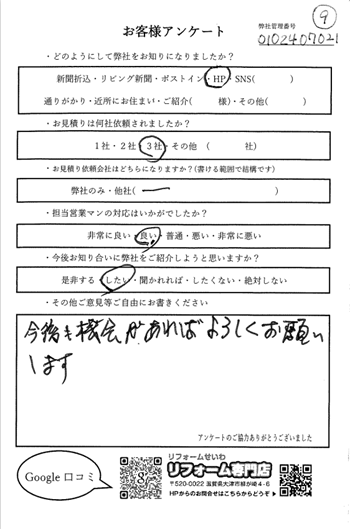 お客様アンケート
弊社管理番号
⑨
0102407021
・どのようにして弊社をお知りになりましたか？
新聞折込・リビング新聞・ポストイン・HP・SNS(　　　)
通りがかり・近所にお住まい・ご紹介(　　様)・その他(　　　)
・お見積りは何社依頼されましたか？
1社・2社・3社・その他 (　　　社)
・お見積り依頼会社はどちらになりますか？(書ける範囲で結構です)
弊社のみ・他社( ー 　　　)
・担当営業マンの対応はいかがでしたか？
非常に良い・良い・普通・悪い・非常に悪い
・今後お知り合いに弊社をご紹介しようと思いますか？
是非する・したい・聞かれれば・したくない・絶対しない
・その他ご意見等ご自由にお書きください
今後も機会があればよろしくお願い
します
アンケートのご協力ありがとうございました
Google 口コミ
リフォームせいわ
リフォーム専門店
〒520-0022 滋賀県大津市柳が崎4-6
HPからのお問合せはこちらからどうぞ